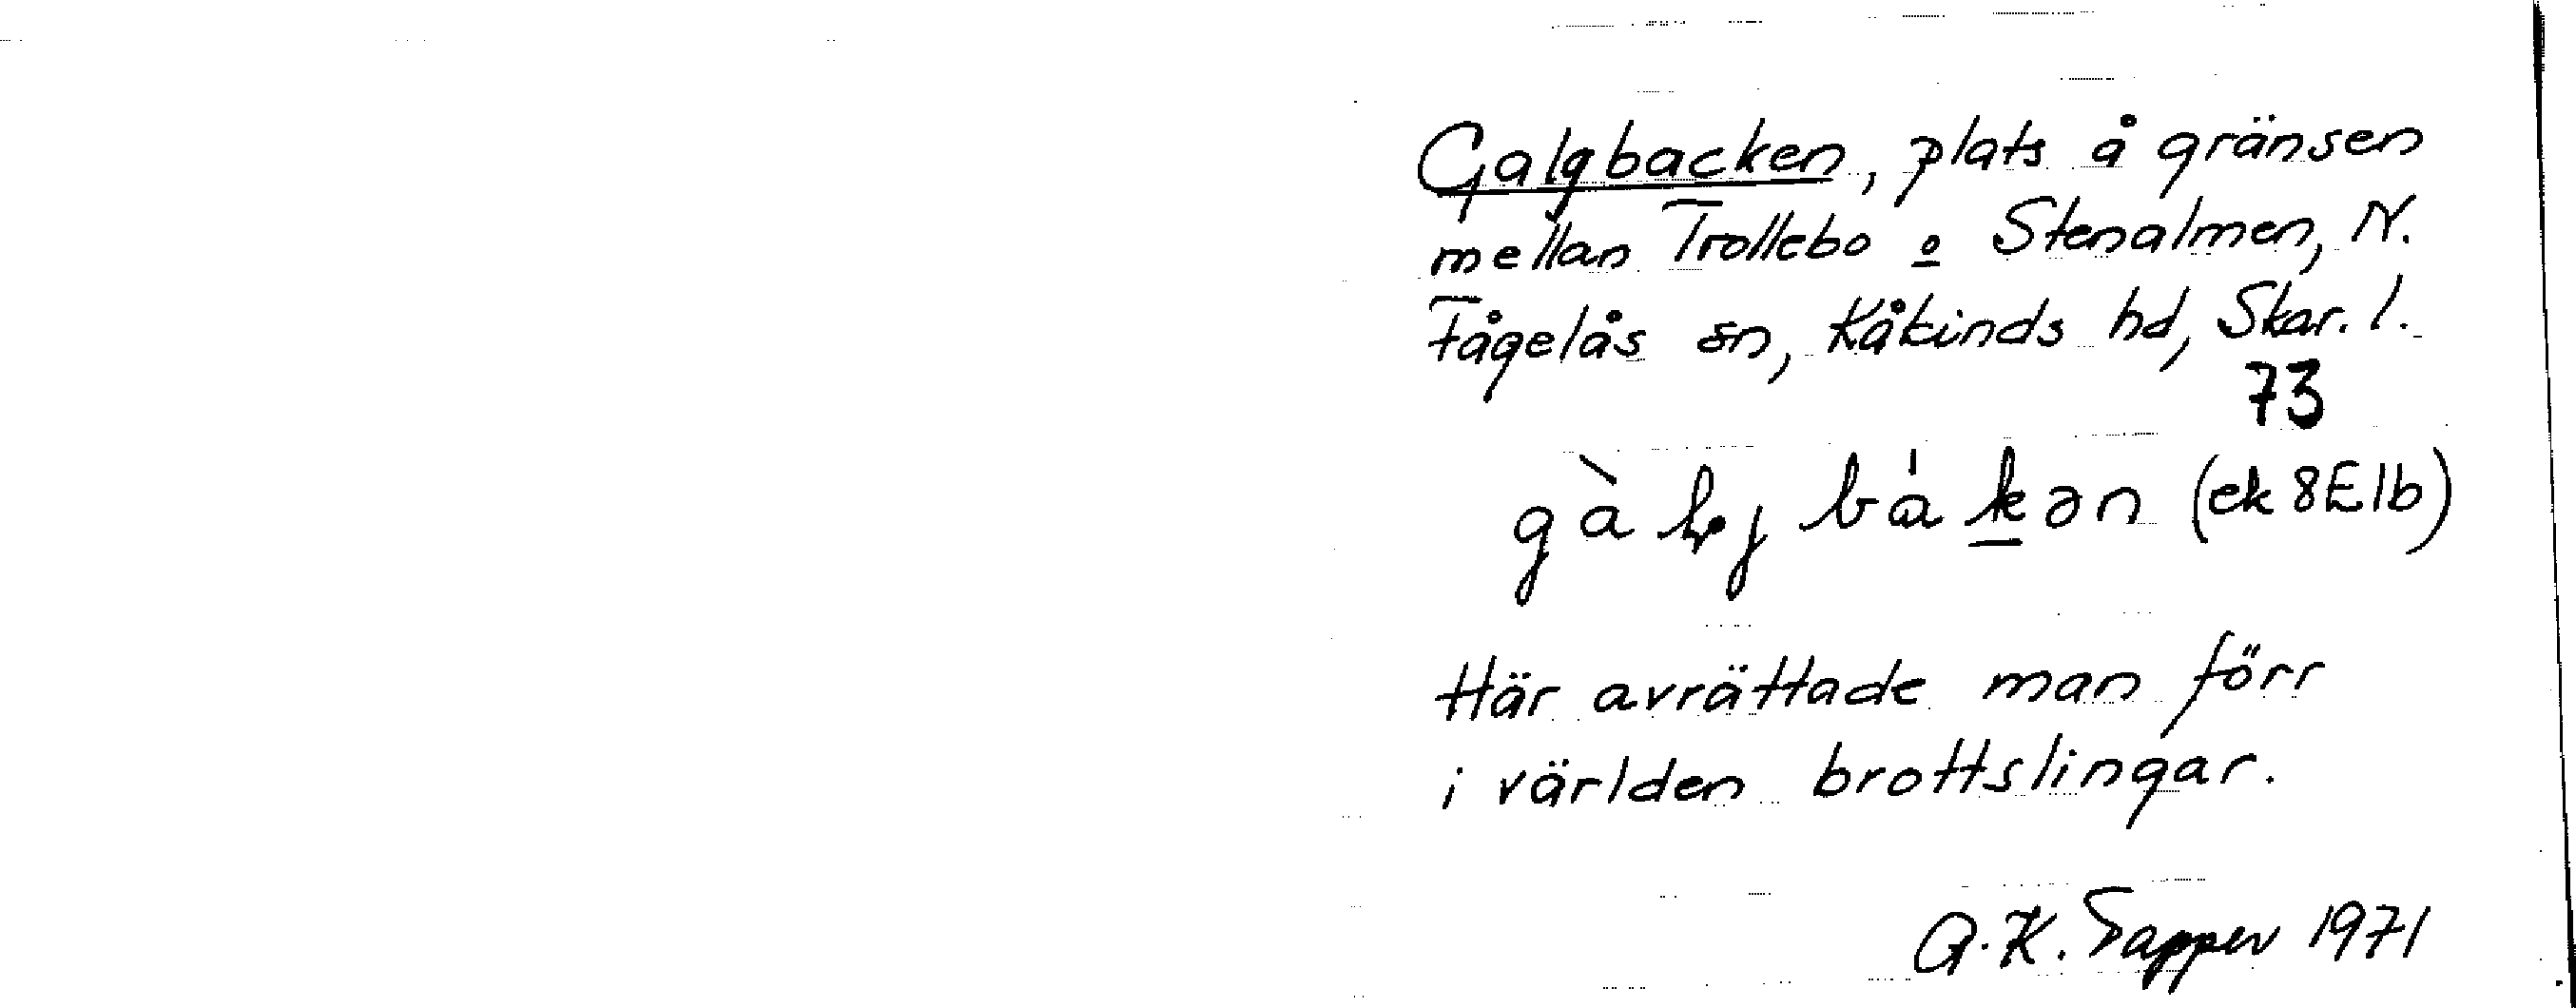 Galgbacken, plats å gränsen
mellan Trollebo o Stenalmen, N.
Fågelås sn, Kåkinds hd, Skar. l.
73
(ek 8E1b)
Här avrättade man förr
i världen brottslingar.
A.K. Tapper 1971